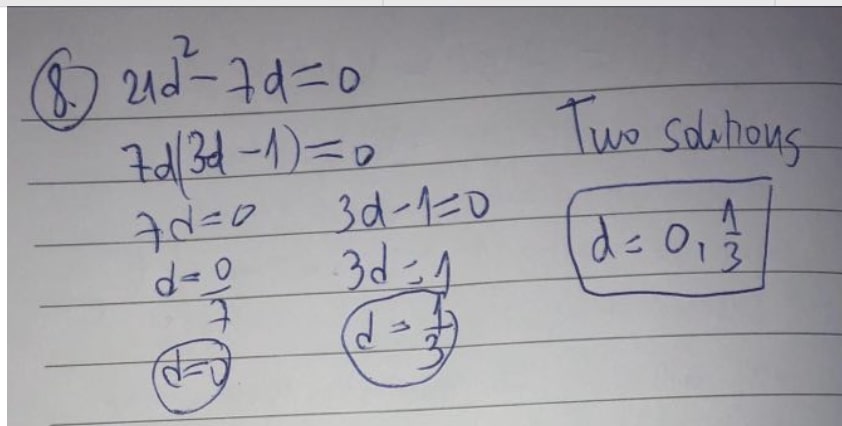 8. 21d² - 7d = 0
7d(3d - 1) = 0
7d = 0
d = 0/7
d = 0
3d - 1 = 0
3d = 1
d = 1/3
Two solutions
d = 0, 1/3